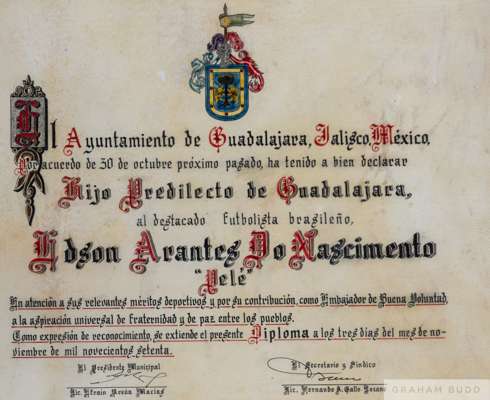 El Ayuntamiento de Guadalajara, Jalisco, México,
Por acuerdo de 30 de octubre próximo pasado, ha tenido a bien declarar
Hijo Predilecto de Guadalajara,
al destacado futbolista brasileño,
Edson Arantes Do Nascimento
"Pelé"
En atención a sus relevantes méritos deportivos y por su contribución, como Embajador de Buena Voluntad,
a la aspiración universal de fraternidad y de paz entre los pueblos.
Como expresión de reconocimiento, se extiende el presente Diploma a los tres días del mes de no-
viembre de mil novecientos setenta.
El Presidente Municipal
El Secretario y Síndico
Lic. Efraín Macías
Lic. Hernando A. Gallo
GRAHAM BUDD